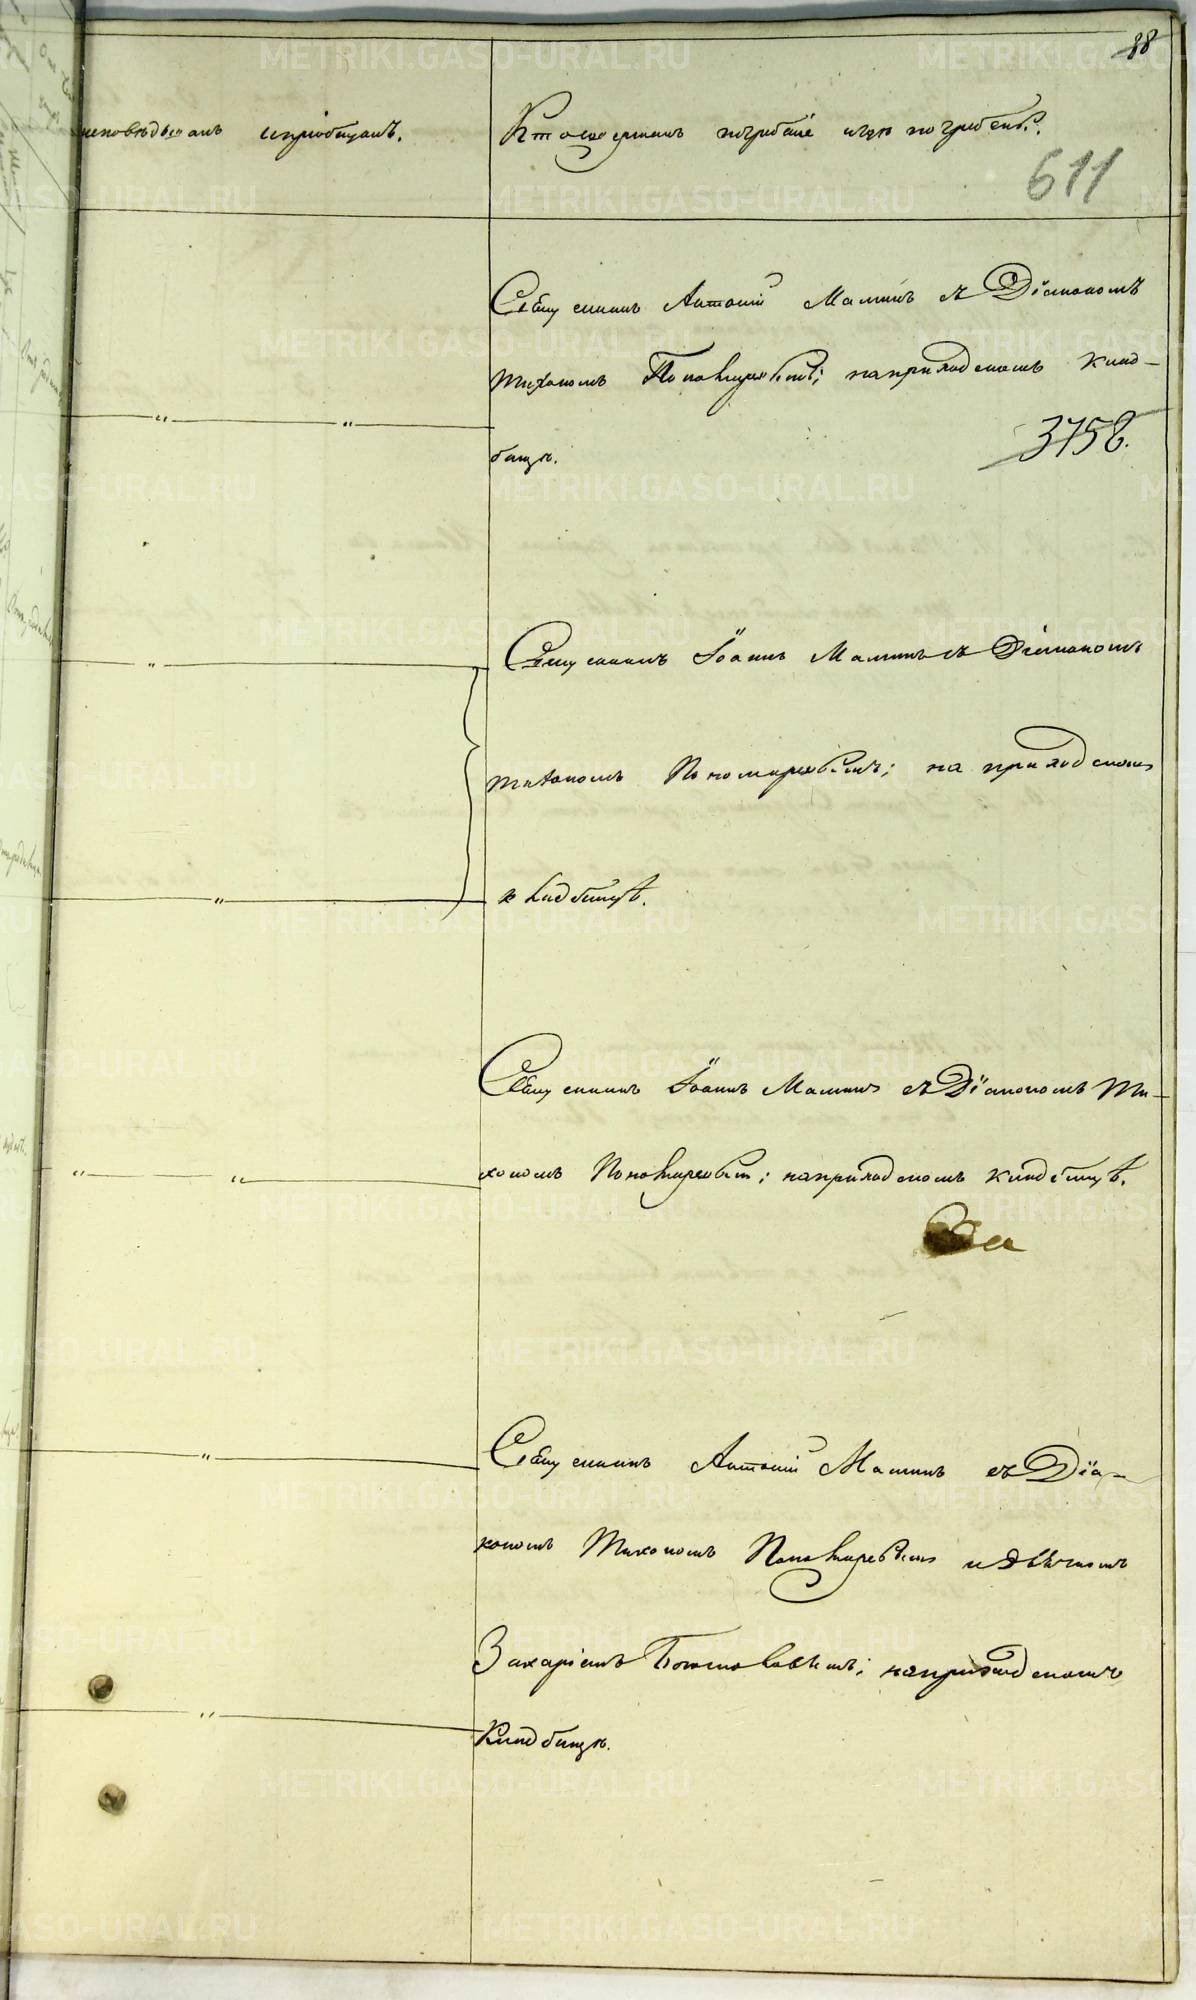 88
исповѣдывалъ и пріобщалъ.
Кто совершалъ погребеніе и гдѣ погребены.
611
Свящ&#1077;нникъ Антоній Маминъ съ Діакономъ
Тихономъ Пономаревымъ; на приходскомъ клад-
бищѣ.
3758.
Священникъ Іоаннъ Маминъ съ Діакономъ
Тихономъ Пономаревымъ; на приходскомъ
кладбищѣ.
Священникъ Іоаннъ Маминъ съ Діакономъ Ти-
хономъ Пономаревымъ; на приходскомъ кладбищѣ.
Священникъ Антоній Маминъ съ Діа-
кономъ Тихономъ Пономаревымъ и дьячкомъ
Захаріемъ Богословскимъ; на приходскомъ
кладбищѣ.
METRIKI.GASO-URAL.RU